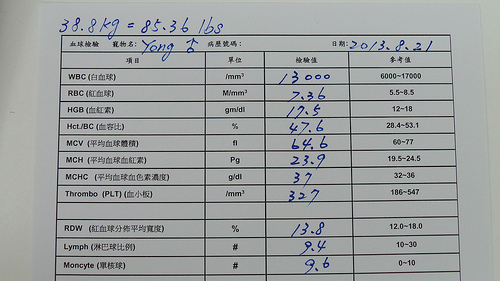 38.8 kg = 85.36 lbs
血球檢驗 寵物名: Yong ♂ 病歷號碼: 日期: 2013.8.21
項目 單位 檢驗值 參考值
WBC (白血球) /mm³ 13000 6000~17000
RBC (紅血球) M/mm³ 7.36 5.5~8.5
HGB (血紅素) gm/dl 17.5 12~18
Hct./BC (血容比) % 47.6 28.4~53.1
MCV (平均血球體積) fl 64.6 60~77
MCH (平均血球血紅素) Pg 23.9 19.5~24.5
MCHC (平均血球血色素濃度) g/dl 37 32~36
Thrombo (PLT) (血小板) /mm³ 327 186~547
RDW (紅血球分佈平均寬度) % 13.8 12.0~18.0
Lymph (淋巴球比例) # 9.4 10~30
Moncyte (單核球) # 9.6 0~10